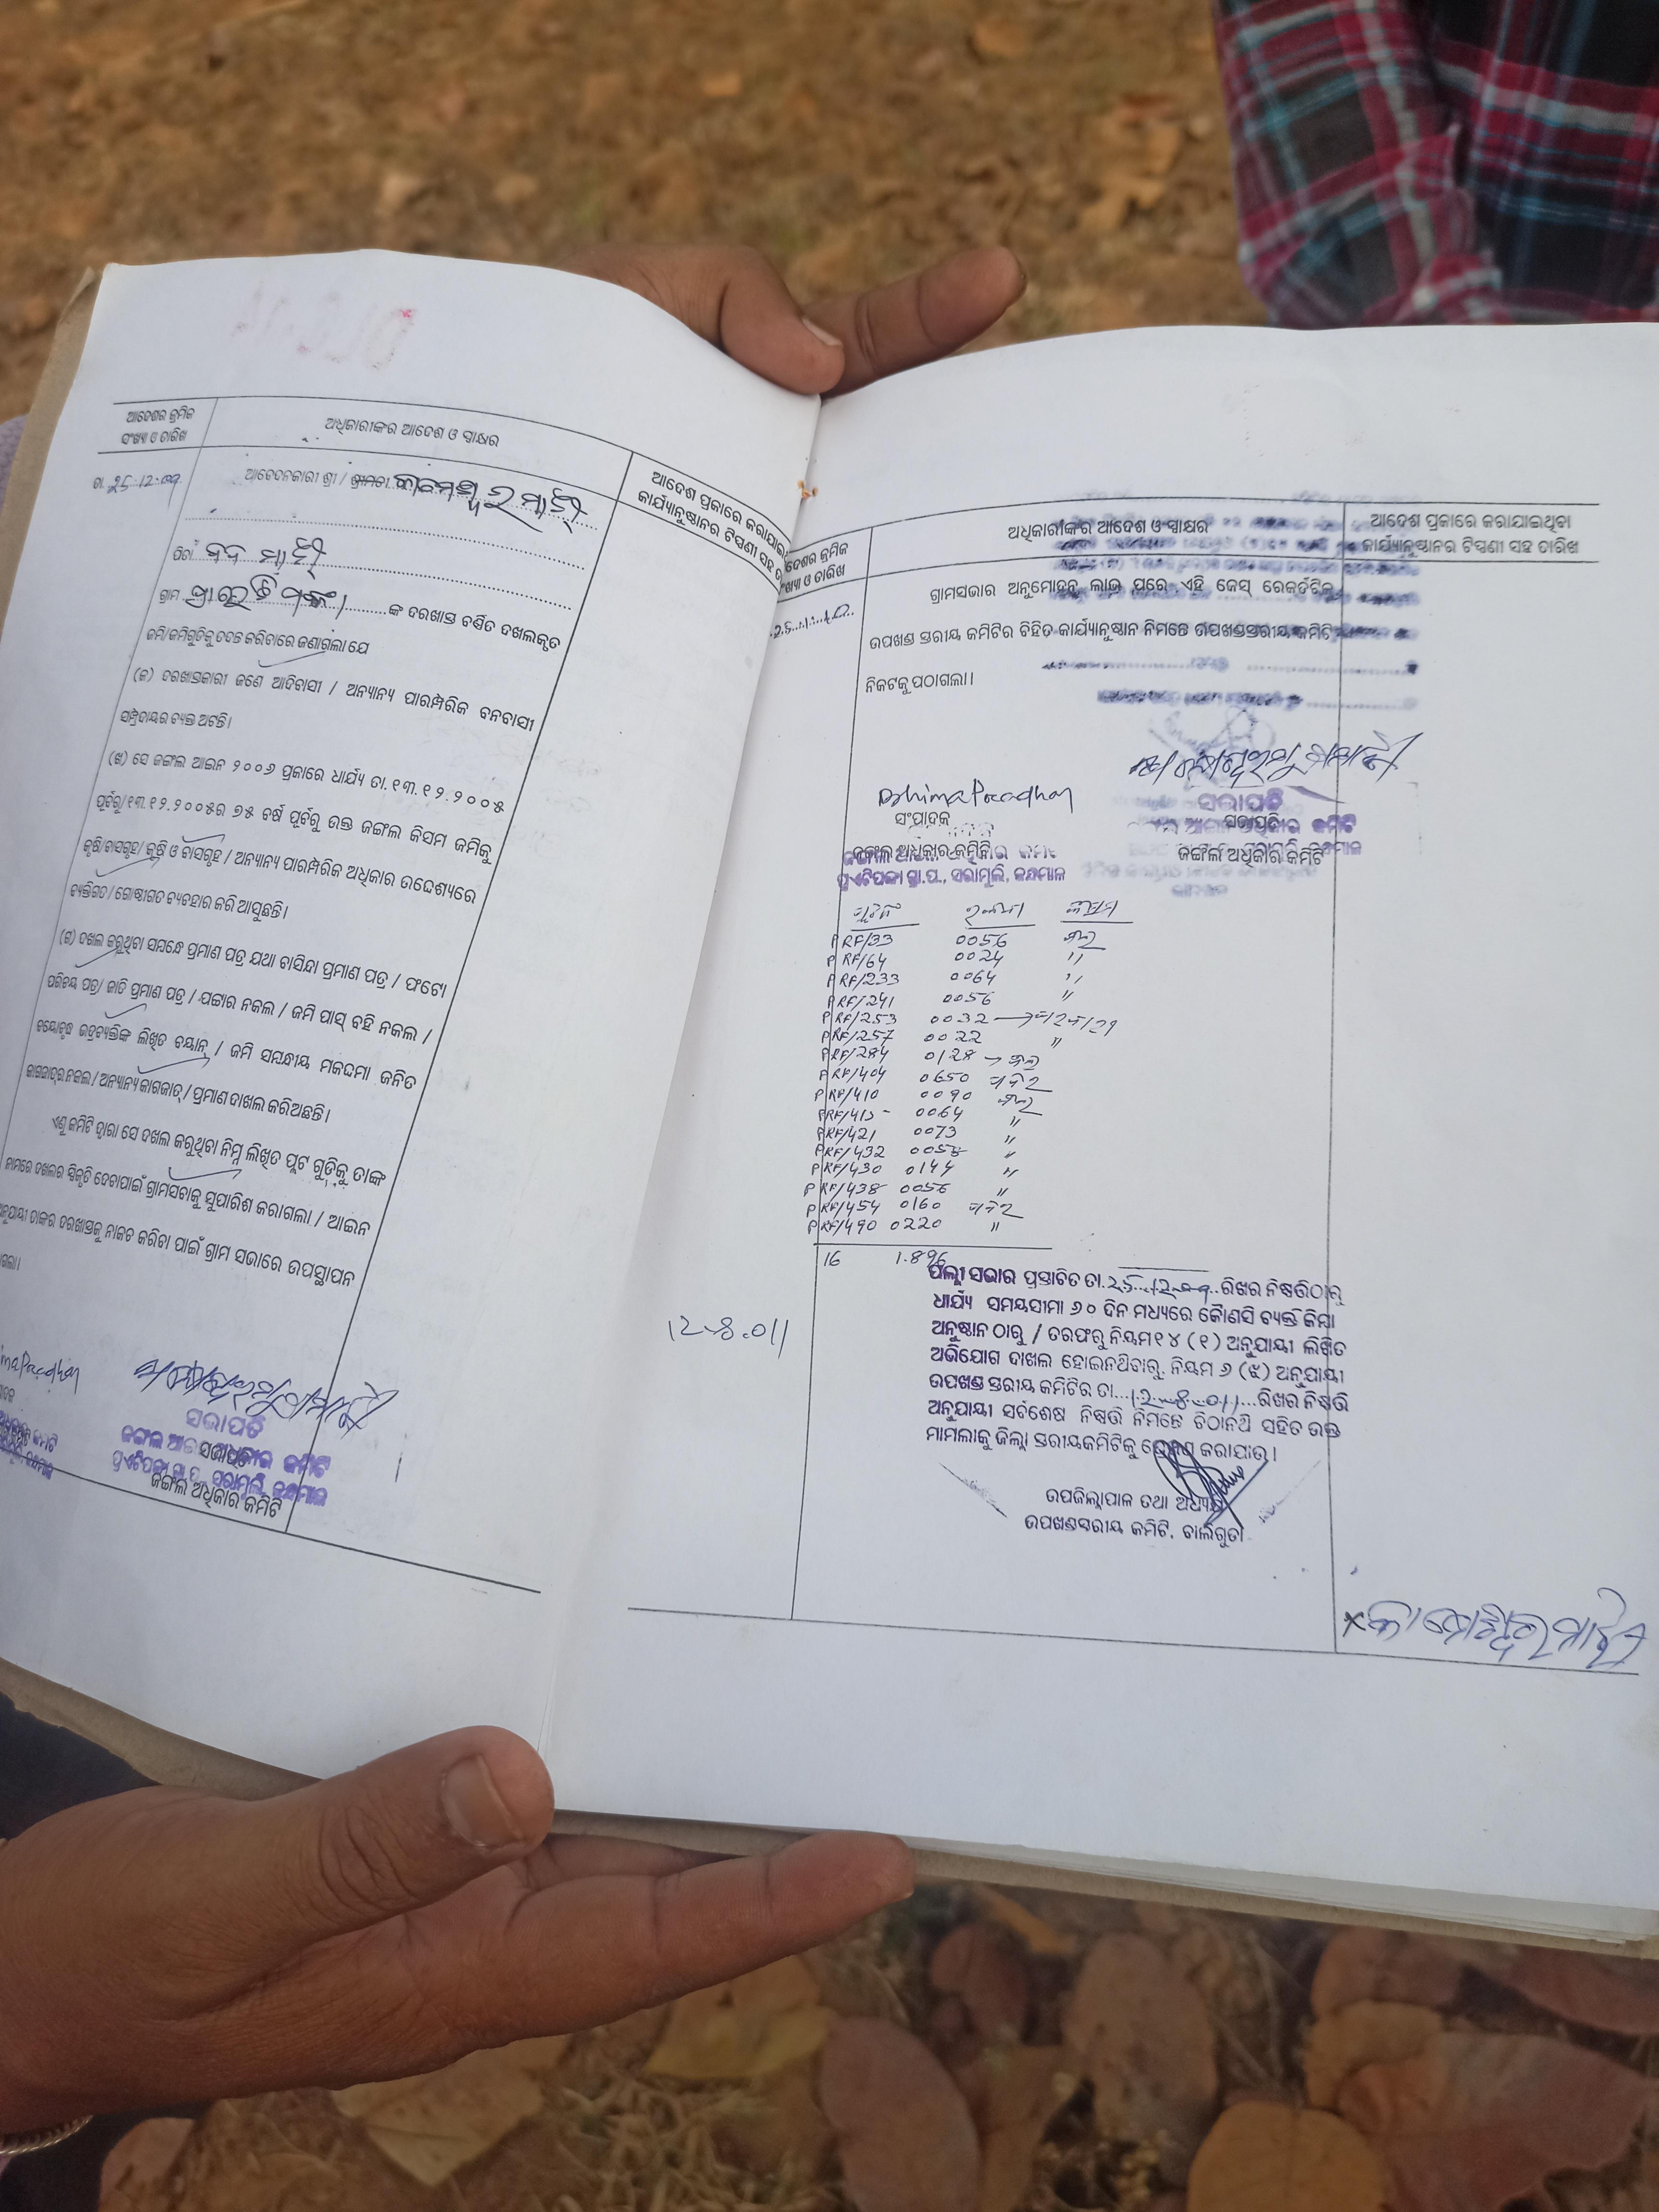 ଆଦେଶର କ୍ରମିକ
ସଂଖ୍ୟା ଓ ତାରିଖ
ଅଧିକାରୀଙ୍କର ଆଦେଶ ଓ ସ୍ୱାକ୍ଷର
ଆଦେଶ ପ୍ରକାରେ କରାଯାଇ
କାର୍ଯ୍ୟାନୁଷ୍ଠାନର ଟିପ୍ପଣୀ ସହ ତା
ତା. 25.12.09
ଆବେଦନକାରୀ ଶ୍ରୀ / ଶ୍ରୀମତୀ
ପିତା
ଗ୍ରାମ ଙ୍କ ଦରଖାସ୍ତ ବର୍ଣିତ ଦଖଲକୃତ
ଜମି/ଜମିଗୁଡିକୁ ତଦନ୍ତ କରିବାରେ ଜଣାଗଲା ଯେ
(କ) ଦରଖାସ୍ତକାରୀ ଜଣେ ଆଦିବାସୀ / ଅନ୍ୟାନ୍ୟ ପାରମ୍ପରିକ ବନବାସୀ
ସମ୍ପ୍ରଦାୟର ବ୍ୟକ୍ତ ଅଟନ୍ତି।
(ଖ) ସେ ଜଙ୍ଗଲ ଆଇନ ୨୦୦୬ ପ୍ରକାରେ ଧାର୍ଯ୍ୟ ତା.୧୩.୧୨.୨୦୦୫
ପୂର୍ବରୁ/୧୩.୧୨.୨୦୦୫ର ୭୫ ବର୍ଷ ପୂର୍ବରୁ ଉକ୍ତ ଜଙ୍ଗଲ କିସମ ଜମିକୁ
କୃଷି/ବାସଗୃହ/କୃଷି ଓ ବାସଗୃହ / ଅନ୍ୟାନ୍ୟ ପାରମ୍ପରିକ ଅଧିକାର ଉଦ୍ଦେଶ୍ୟରେ
ବ୍ୟକ୍ତିଗତ/ଗୋଷ୍ଠୀଗତ ବ୍ୟବହାର କରି ଆସୁଛନ୍ତି।
(ଗ) ଦଖଲ କରୁଥିବା ସମ୍ବନ୍ଧେ ପ୍ରମାଣ ପତ୍ର ଯଥା ବାସିନ୍ଦା ପ୍ରମାଣ ପତ୍ର / ଫଟୋ
ପରିଚୟ ପତ୍ର/ ଜାତି ପ୍ରମାଣ ପତ୍ର / ପଟ୍ଟାର ନକଲ / ଜମି ପାସ୍ ବହି ନକଲ /
ବୟୋବୃଦ୍ଧ ଭଦ୍ରବ୍ୟକ୍ତିଙ୍କ ଲିଖିତ ବୟାନ୍ / ଜମି ସମ୍ବନ୍ଧୀୟ ମକଦ୍ଦମା ଜନିତ
କାଗଜାତ୍‌ର ନକଲ / ଅନ୍ୟାନ୍ୟ କାଗଜାତ୍ / ପ୍ରମାଣ ଦାଖଲ କରିଅଛନ୍ତି।
ଏଣୁ କମିଟି ଦ୍ୱାରା ସେ ଦଖଲ କରୁଥିବା ନିମ୍ନ ଲିଖିତ ପ୍ଲଟ ଗୁଡ଼ିକୁ ତାଙ୍କ
ନାମରେ ଦଖଲର ସ୍ୱିକୃତି ଦେବାପାଇଁ ଗ୍ରାମସଭାକୁ ସୁପାରିଶ କରାଗଲା / ଆଇନ
ଅନୁଯାୟୀ ତାଙ୍କର ଦରଖାସ୍ତକୁ ନାକଚ କରିବା ପାଇଁ ଗ୍ରାମ ସଭାରେ ଉପସ୍ଥାପନ
ସଭାପତି
ଜଙ୍ଗଲ ଅଧିକାର କମିଟି
ଦେଶର କ୍ରମିକ
ସଂଖ୍ୟା ଓ ତାରିଖ
ଅଧିକାରୀଙ୍କର ଆଦେଶ ଓ ସ୍ୱାକ୍ଷର
ଆଦେଶ ପ୍ରକାରେ କରାଯାଇଥିବା
କାର୍ଯ୍ୟାନୁଷ୍ଠାନର ଟିପ୍ପଣୀ ସହ ତାରିଖ
25.1.10
ଗ୍ରାମସଭାର ଅନୁମୋଦନ ଲାଭ ପରେ ଏହି କେସ୍ ରେକର୍ଡଟିକୁ
ଉପଖଣ୍ଡ ସ୍ତରୀୟ କମିଟିର ବିହିତ କାର୍ଯ୍ୟାନୁଷ୍ଠାନ ନିମନ୍ତେ ଉପଖଣ୍ଡସ୍ତରୀୟ କମିଟି
ନିକଟକୁ ପଠାଗଲା।
Bhima Pradhan
ସଂପାଦକ
ଜଙ୍ଗଲ ଅଧିକାର କମିଟି
ସଭାପତି
ଜଙ୍ଗଲ ଅଧିକାର କମିଟି
PRF/33 0056
PRF/64 0024 "
PRF/233 0064 "
PRF/241 0056 "
PRF/253 0032
PRF/257 0022 "
PRF/284 0128
PRF/404 0650
PRF/410 0090
PRF/415 0064 "
PRF/421 0073 "
PRF/432 "
PRF/430 0144 "
PRF/438 0056 "
PRF/454 0160
PRF/490 0220 "
16 1.896
12.8.011
ପଲ୍ଲୀ ସଭାର ପ୍ରସ୍ତାବିତ ତା.25.12.09..ରିଖର ନିଷ୍ପତ୍ତିଠାରୁ
ଧାର୍ଯ୍ୟ ସମୟସୀମା ୬୦ ଦିନ ମଧ୍ୟରେ କୌଣସି ବ୍ୟକ୍ତି କିମ୍ବା
ଅନୁଷ୍ଠାନ ଠାରୁ / ତରଫରୁ ନିୟମ ୧୪ (୧) ଅନୁଯାୟୀ ଲିଖିତ
ଅଭିଯୋଗ ଦାଖଲ ହୋଇନଥିବାରୁ ନିୟମ ୬ (ଝ) ଅନୁଯାୟୀ
ଉପଖଣ୍ଡ ସ୍ତରୀୟ କମିଟିର ତା...12.8.011...ରିଖର ନିଷ୍ପତ୍ତି
ଅନୁଯାୟୀ ସର୍ବଶେଷ ନିଷ୍ପତ୍ତି ନିମନ୍ତେ ଚିଠାନଥି ସହିତ ଉକ୍ତ
ମାମଲାକୁ ଜିଲ୍ଲା ସ୍ତରୀୟକମିଟିକୁ ପ୍ରେରଣ କରାଯାଉ।
ଉପଜିଲ୍ଲାପାଳ ତଥା ଅଧ୍ୟକ୍ଷ
ଉପଖଣ୍ଡସ୍ତରୀୟ କମିଟି, ବାଲିଗୁଡା